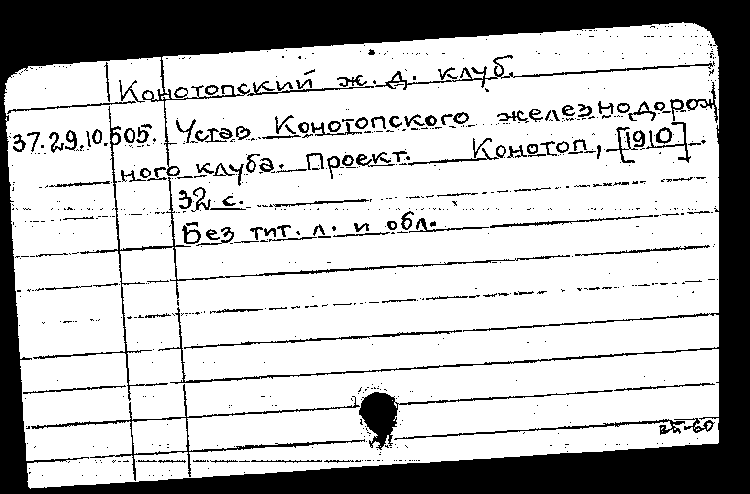 Конотопский ж. д. клуб.
37.29.10.505. Устав Конотопского железнодорож
ного клуба. Проект. Конотоп, [1910].
32 с.
Без тит. л. и обл.